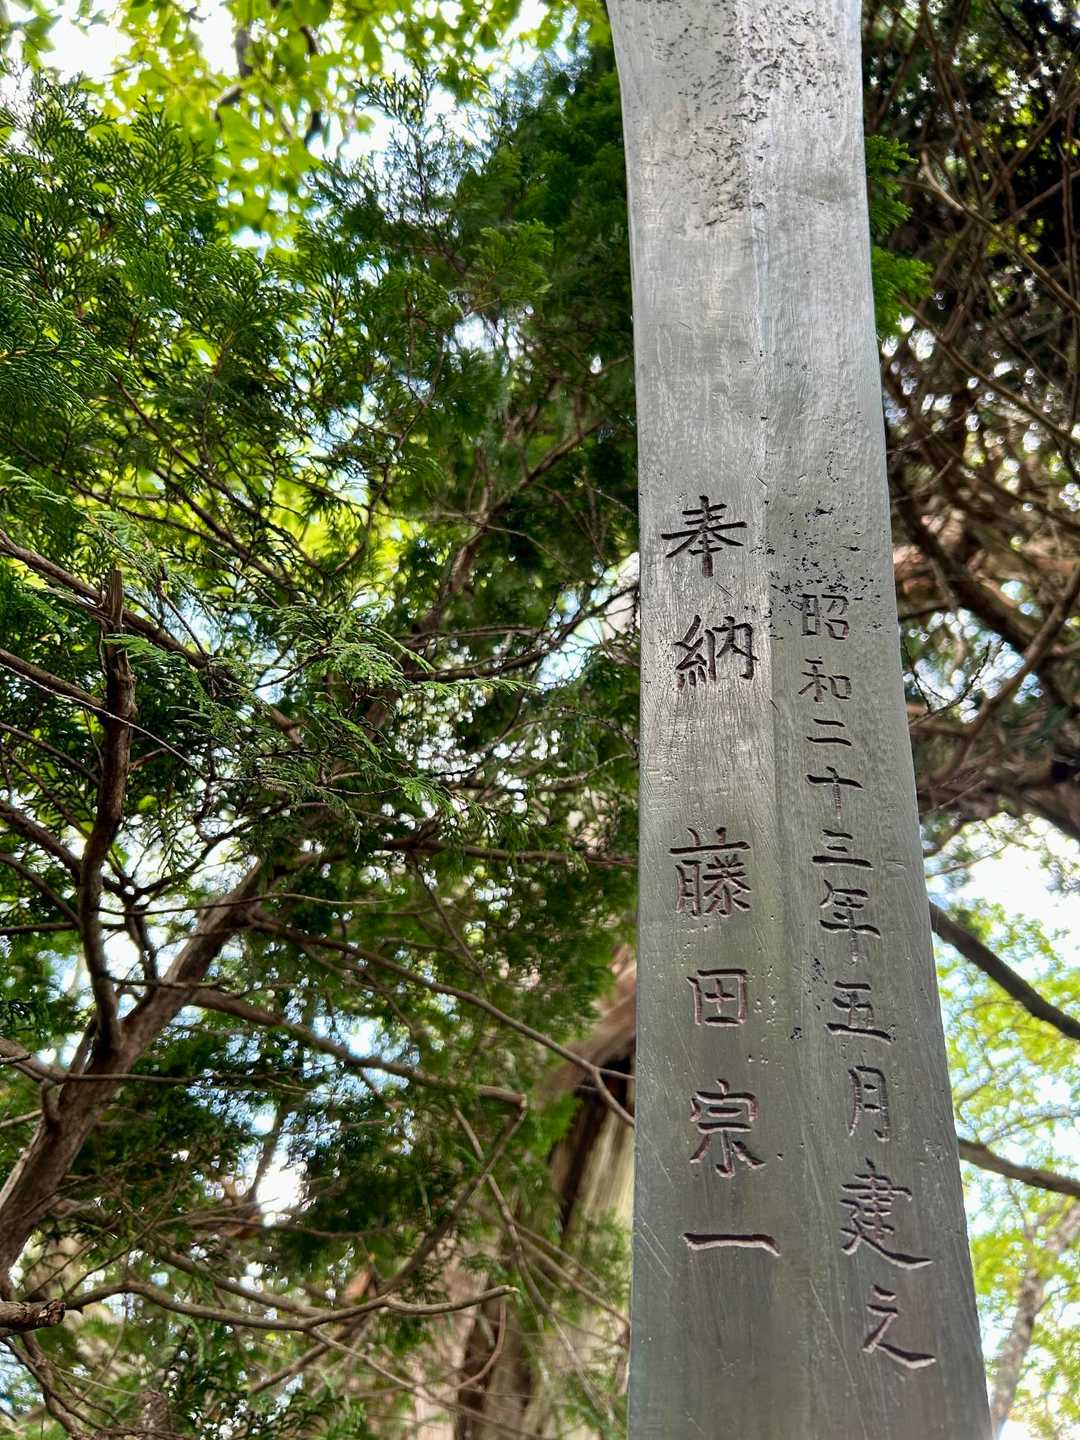 昭和二十三年五月建之
奉納 藤田宗一